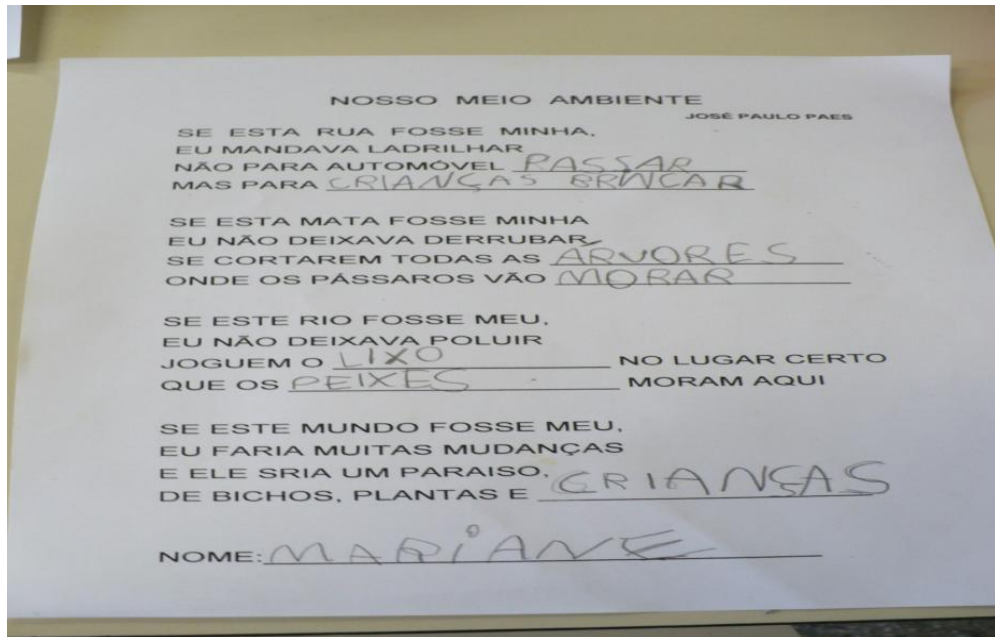 NOSSO MEIO AMBIENTE
JOSÉ PAULO PAES
SE ESTA RUA FOSSE MINHA,
EU MANDAVA LADRILHAR
NÃO PARA AUTOMÓVEL PASSAR
MAS PARA CRIANÇAS BRINCAR
SE ESTA MATA FOSSE MINHA
EU NÃO DEIXAVA DERRUBAR
SE CORTAREM TODAS AS ÁRVORES
ONDE OS PÁSSAROS VÃO MORAR
SE ESTE RIO FOSSE MEU,
EU NÃO DEIXAVA POLUIR
JOGUEM O LIXO NO LUGAR CERTO
QUE OS PEIXES MORAM AQUI
SE ESTE MUNDO FOSSE MEU,
EU FARIA MUITAS MUDANÇAS
E ELE SRIA UM PARAISO,
DE BICHOS, PLANTAS E CRIANÇAS
NOME: MARIANE